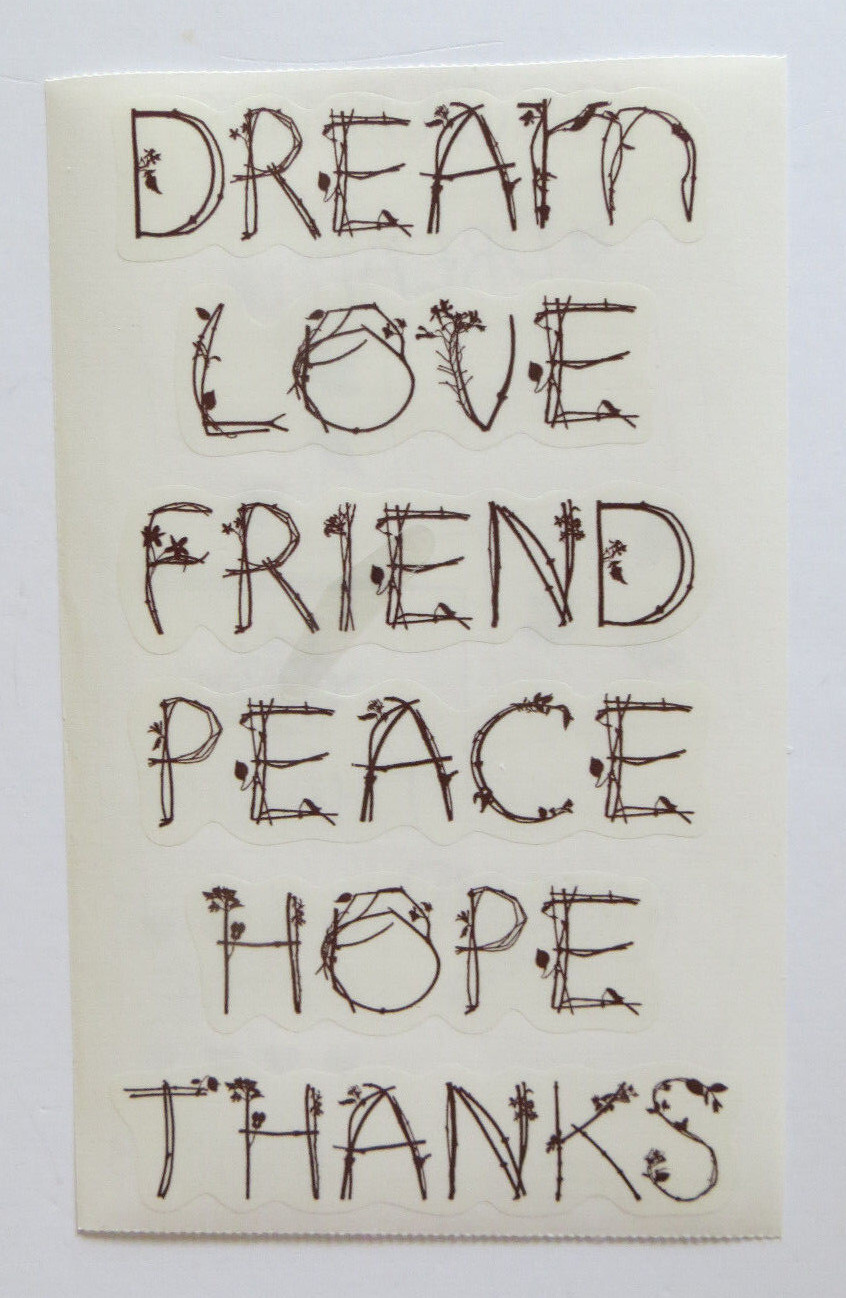 DREAm
LOVE
FRIEND
PEACE
HOPE
THANKS